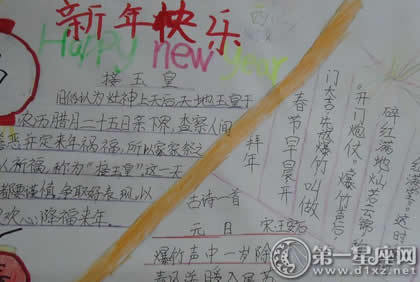 新年快乐
Happy new year
接玉皇
旧俗认为灶神上天后,天地玉皇于
农历腊月二十五日亲下界,查察人间
善恶,并定来年祸福,所以家家祭之
以祈福,称为"接玉皇"这一天
都要谨慎,争取好表现,以
欢心,降福来年。
拜年
春节早晨开
门大吉,先放爆竹,叫做
"开门炮仗"爆竹声后,
碎红满地,灿若云锦,
这时
古诗一首
元日 宋 王安石
爆竹声中一岁除
春风送暖入屠苏
第一星座网
www.d1xz.net